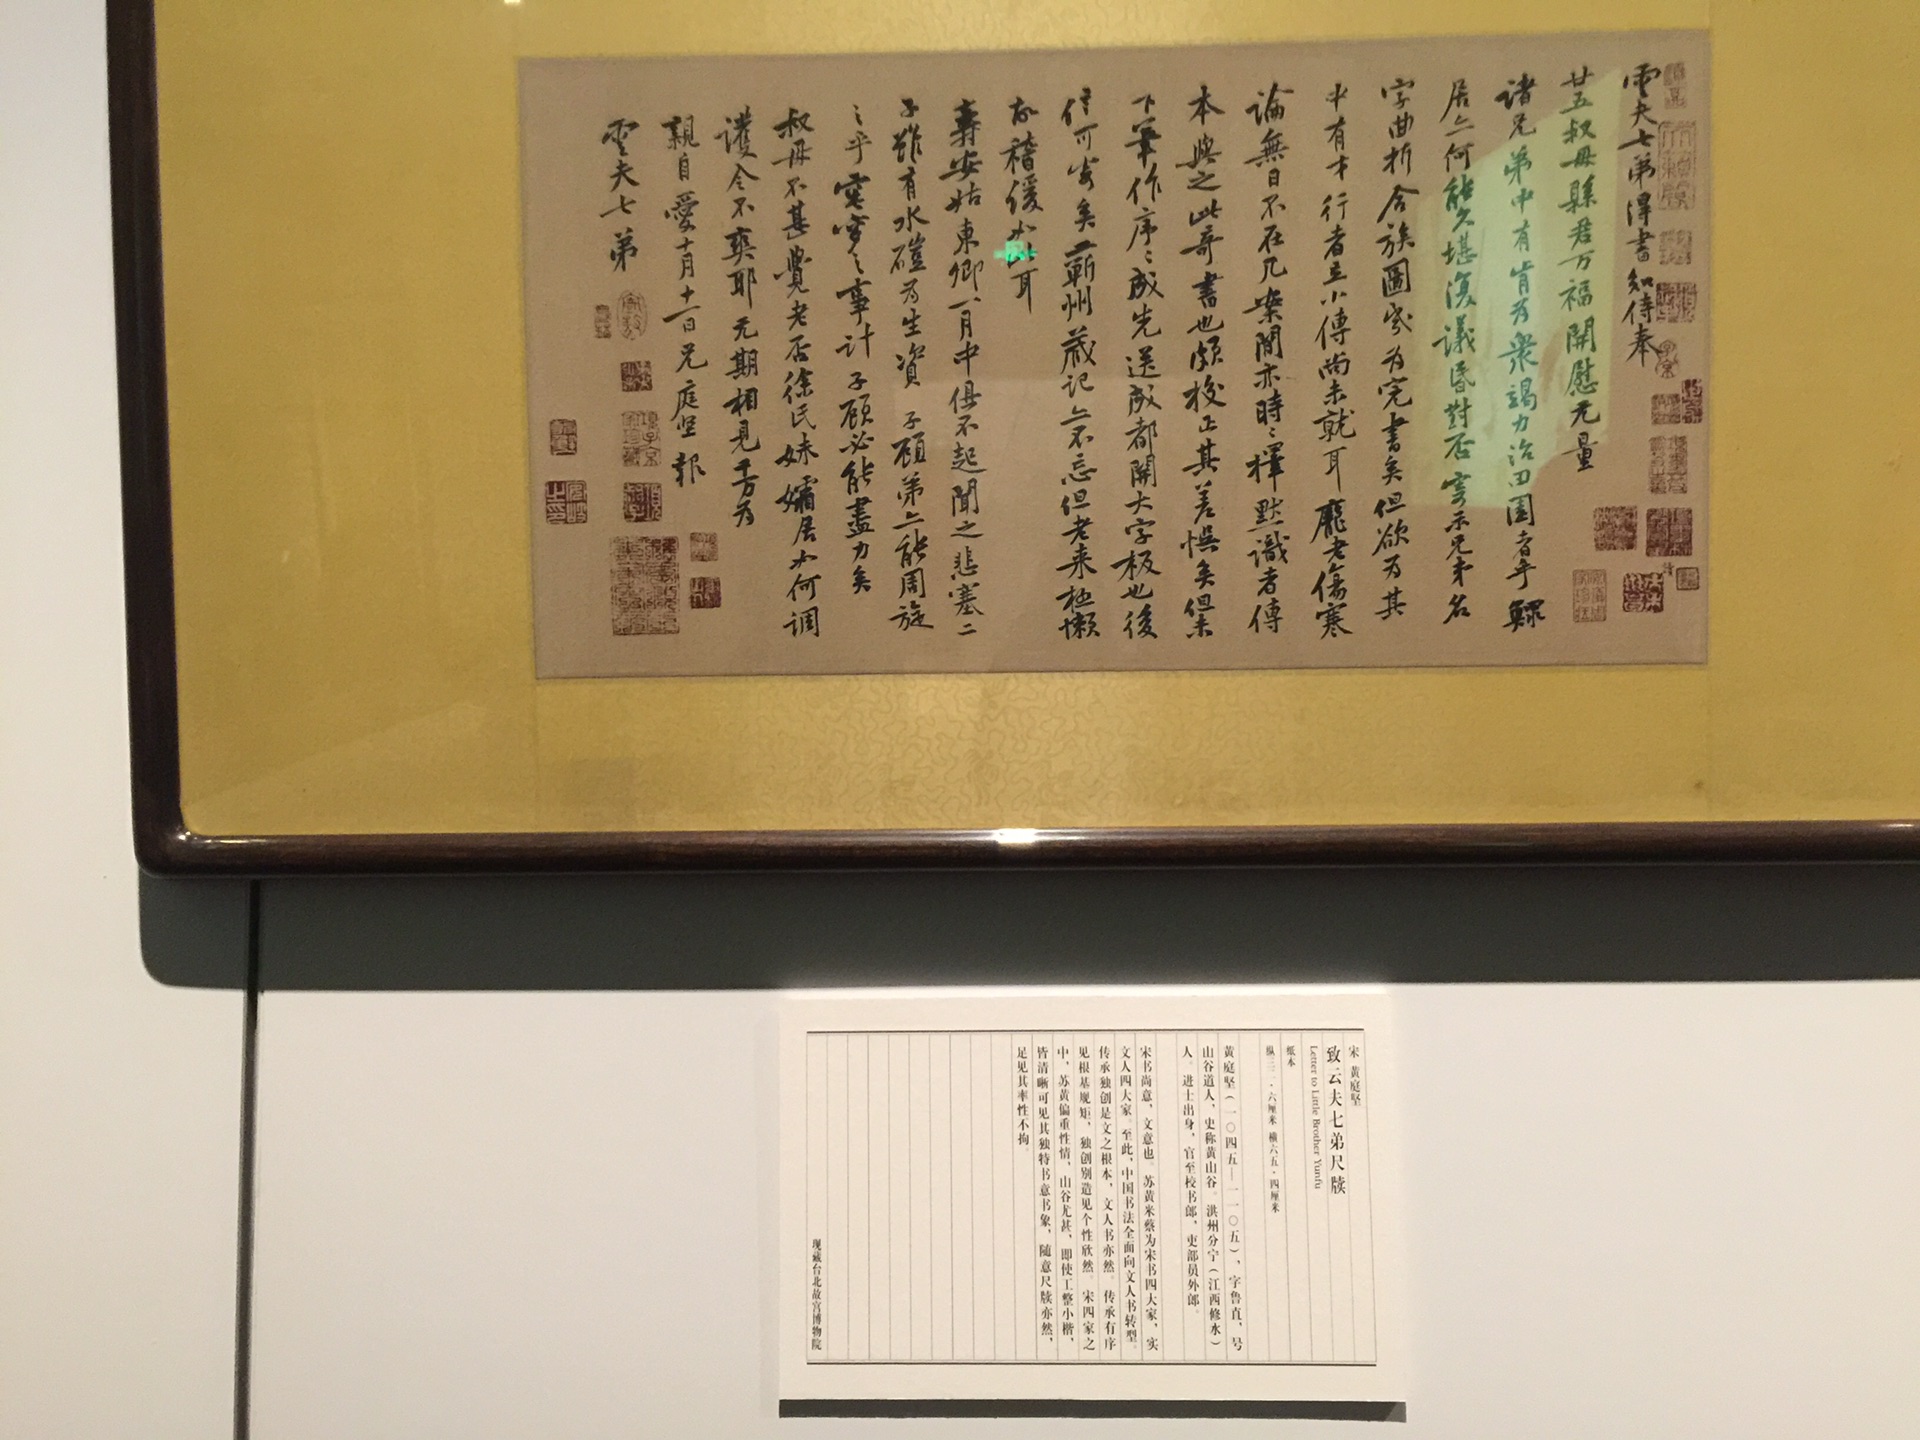 雲夫七弟得書知侍奉
廿五叔母縣君万福開慰无量
諸兄弟中有肯为衆竭力治田園者乎鰥
居亦何能久堪復議昏對否寄示兄弟名
字曲折合族圖岁为完書矣但欲为其
中有才行者立小傳尚未就耳龐老傷寒
論無日不在几案間亦時〻擇默識者傳
本與之此奇書也頗校正其差悞矣但未
下筆作序〻成先送成都開大字板也後
信可寄矣蘄州藏记亦不忘但老来極懶
故稽緩如此耳
壽安姑東卿一月中俱不起聞之悲塞二
子雖有水磑为生資 子顧弟亦能周旋
之乎 窀穸之事計子顧必能盡力矣
叔母不甚覺老否徐氏妹孀居如何調
護令不爽耶 元期相見千万为
親自愛 十月十一日兄庭坚報
雲夫七弟
宋 黄庭坚
致云夫七弟尺牍
Letter to Little Brother Yunfu
纸本
纵三一·六厘米 横六五·四厘米
黄庭坚（一〇四五—一一〇五），字鲁直，号
山谷道人，史称黄山谷。洪州分宁（江西修水）
人。进士出身，官至校书郎、吏部员外郎。
宋书尚意，文意也。苏黄米蔡为宋书四大家，实
文人四大家。至此，中国书法全面向文人书转型。
传承独创是文之根本，文人书亦然。传承有序
见根基规矩，独创别造见个性欣然。宋四家之
中，苏黄偏重性情，山谷尤甚，即使工整小楷，
皆清晰可见其独特书意书象，随意尺牍亦然，
足见其率性不拘。
现藏台北故宫博物院